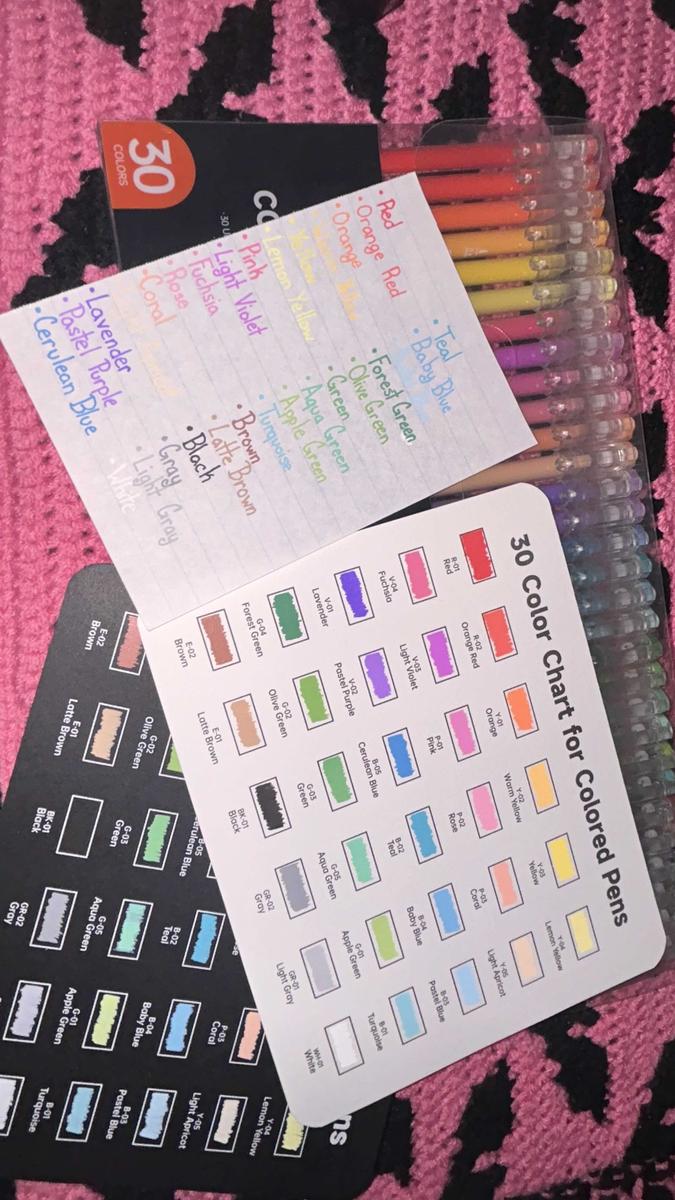 30
COLORS
CO
30 U
• Red
• Orange Red
• Orange
• Warm Yellow
• Yellow
• Lemon Yellow
• Pink
• Light Violet
• Fuchsia
• Rose
• Coral
• Lavender
• Pastel Purple
• Cerulean Blue
• Teal
• Baby Blue
• Forest Green
• Olive Green
• Green
• Aqua Green
• Apple Green
• Turquoise
• Brown
• Latte Brown
• Black
• Gray
• Light Gray
• White
30 Color Chart for Colored Pens
R-01
Red
R-02
Orange Red
Y-01
Orange
Y-02
Warm Yellow
Y-03
Yellow
Y-04
Lemon Yellow
V-04
Fuchsia
V-03
Light Violet
P-01
Pink
P-02
Rose
P-03
Coral
Y-05
Light Apricot
V-01
Lavender
V-02
Pastel Purple
B-05
Cerulean Blue
B-02
Teal
B-04
Baby Blue
B-03
Pastel Blue
G-04
Forest Green
G-02
Olive Green
G-03
Green
G-05
Aqua Green
G-01
Apple Green
B-01
Turquoise
E-02
Brown
E-01
Latte Brown
BK-01
Black
GR-02
Gray
GR-01
Light Gray
WH-01
White
ns
Y-04
Lemon Yellow
P-03
Coral
Y-05
Light Apricot
B-05
erulean Blue
B-02
Teal
B-04
Baby Blue
B-03
Pastel Blue
G-02
Olive Green
G-03
Green
G-05
Aqua Green
G-01
Apple Green
B-01
Turquoise
E-02
Brown
E-01
Latte Brown
BK-01
Black
GR-02
Gray